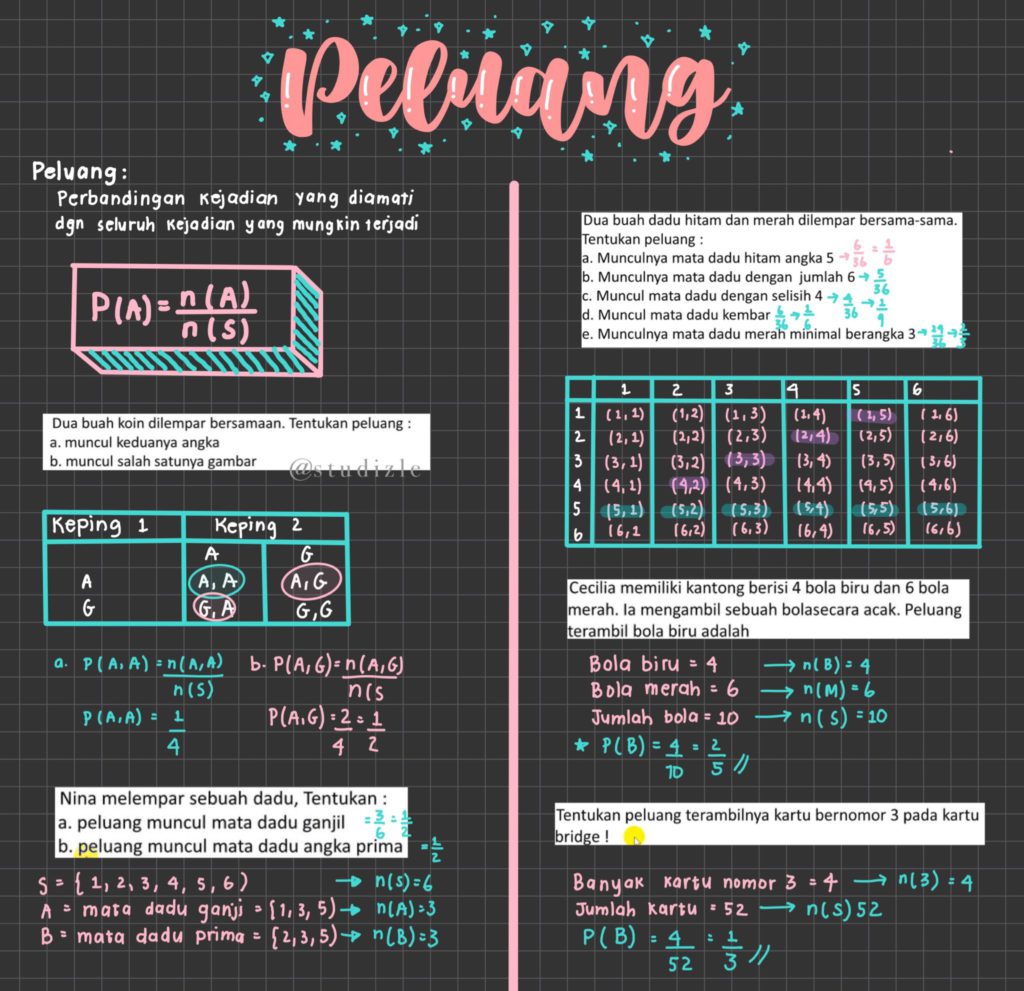 Peluang
Peluang:
Perbandingan kejadian yang diamati
dgn seluruh kejadian yang mungkin terjadi
P(A) = n(A)/n(S)
Dua buah koin dilempar bersamaan. Tentukan peluang :
a. muncul keduanya angka
b. muncul salah satunya gambar
@studizle
Keping 1 Keping 2
A G
A A,A A,G
G G,A G,G
a. P(A,A) = n(A,A)/n(S)
P(A,A) = 1/4
b. P(A,G) = n(A,G)/n(S
P(A,G) = 2/4 = 1/2
Nina melempar sebuah dadu, Tentukan :
a. peluang muncul mata dadu ganjil = 3/6 = 1/2
b. peluang muncul mata dadu angka prima = 1/2
S = { 1, 2, 3, 4, 5, 6 ) → n(S) = 6
A = mata dadu ganji = {1, 3, 5) → n(A) = 3
B = mata dadu prima = {2, 3, 5) → n(B) = 3
Dua buah dadu hitam dan merah dilempar bersama-sama.
Tentukan peluang :
a. Munculnya mata dadu hitam angka 5 → 6/36 = 1/6
b. Munculnya mata dadu dengan jumlah 6 → 5/36
c. Muncul mata dadu dengan selisih 4 → 4/36 → 1/9
d. Muncul mata dadu kembar 6/36 → 1/6
e. Munculnya mata dadu merah minimal berangka 3 →
1 2 3 4 5 6
1 (1,1) (1,2) (1,3) (1,4) (1,5) (1,6)
2 (2,1) (2,2) (2,3) (2,4) (2,5) (2,6)
3 (3,1) (3,2) (3,3) (3,4) (3,5) (3,6)
4 (4,1) (4,2) (4,3) (4,4) (4,5) (4,6)
5 (5,1) (5,2) (5,3) (5,4) (5,5) (5,6)
6 (6,1 (6,2) (6,3) (6,4) (6,5) (6,6)
Cecilia memiliki kantong berisi 4 bola biru dan 6 bola
merah. Ia mengambil sebuah bolasecara acak. Peluang
terambil bola biru adalah
Bola biru = 4 → n(B) = 4
Bola merah = 6 → n(M) = 6
Jumlah bola = 10 → n(S) = 10
★ P(B) = 4/10 = 2/5 //
Tentukan peluang terambilnya kartu bernomor 3 pada kartu
bridge !
Banyak kartu nomor 3 = 4 → n(3) = 4
Jumlah kartu = 52 → n(S) 52
P(B) = 4/52 = 1/3 //